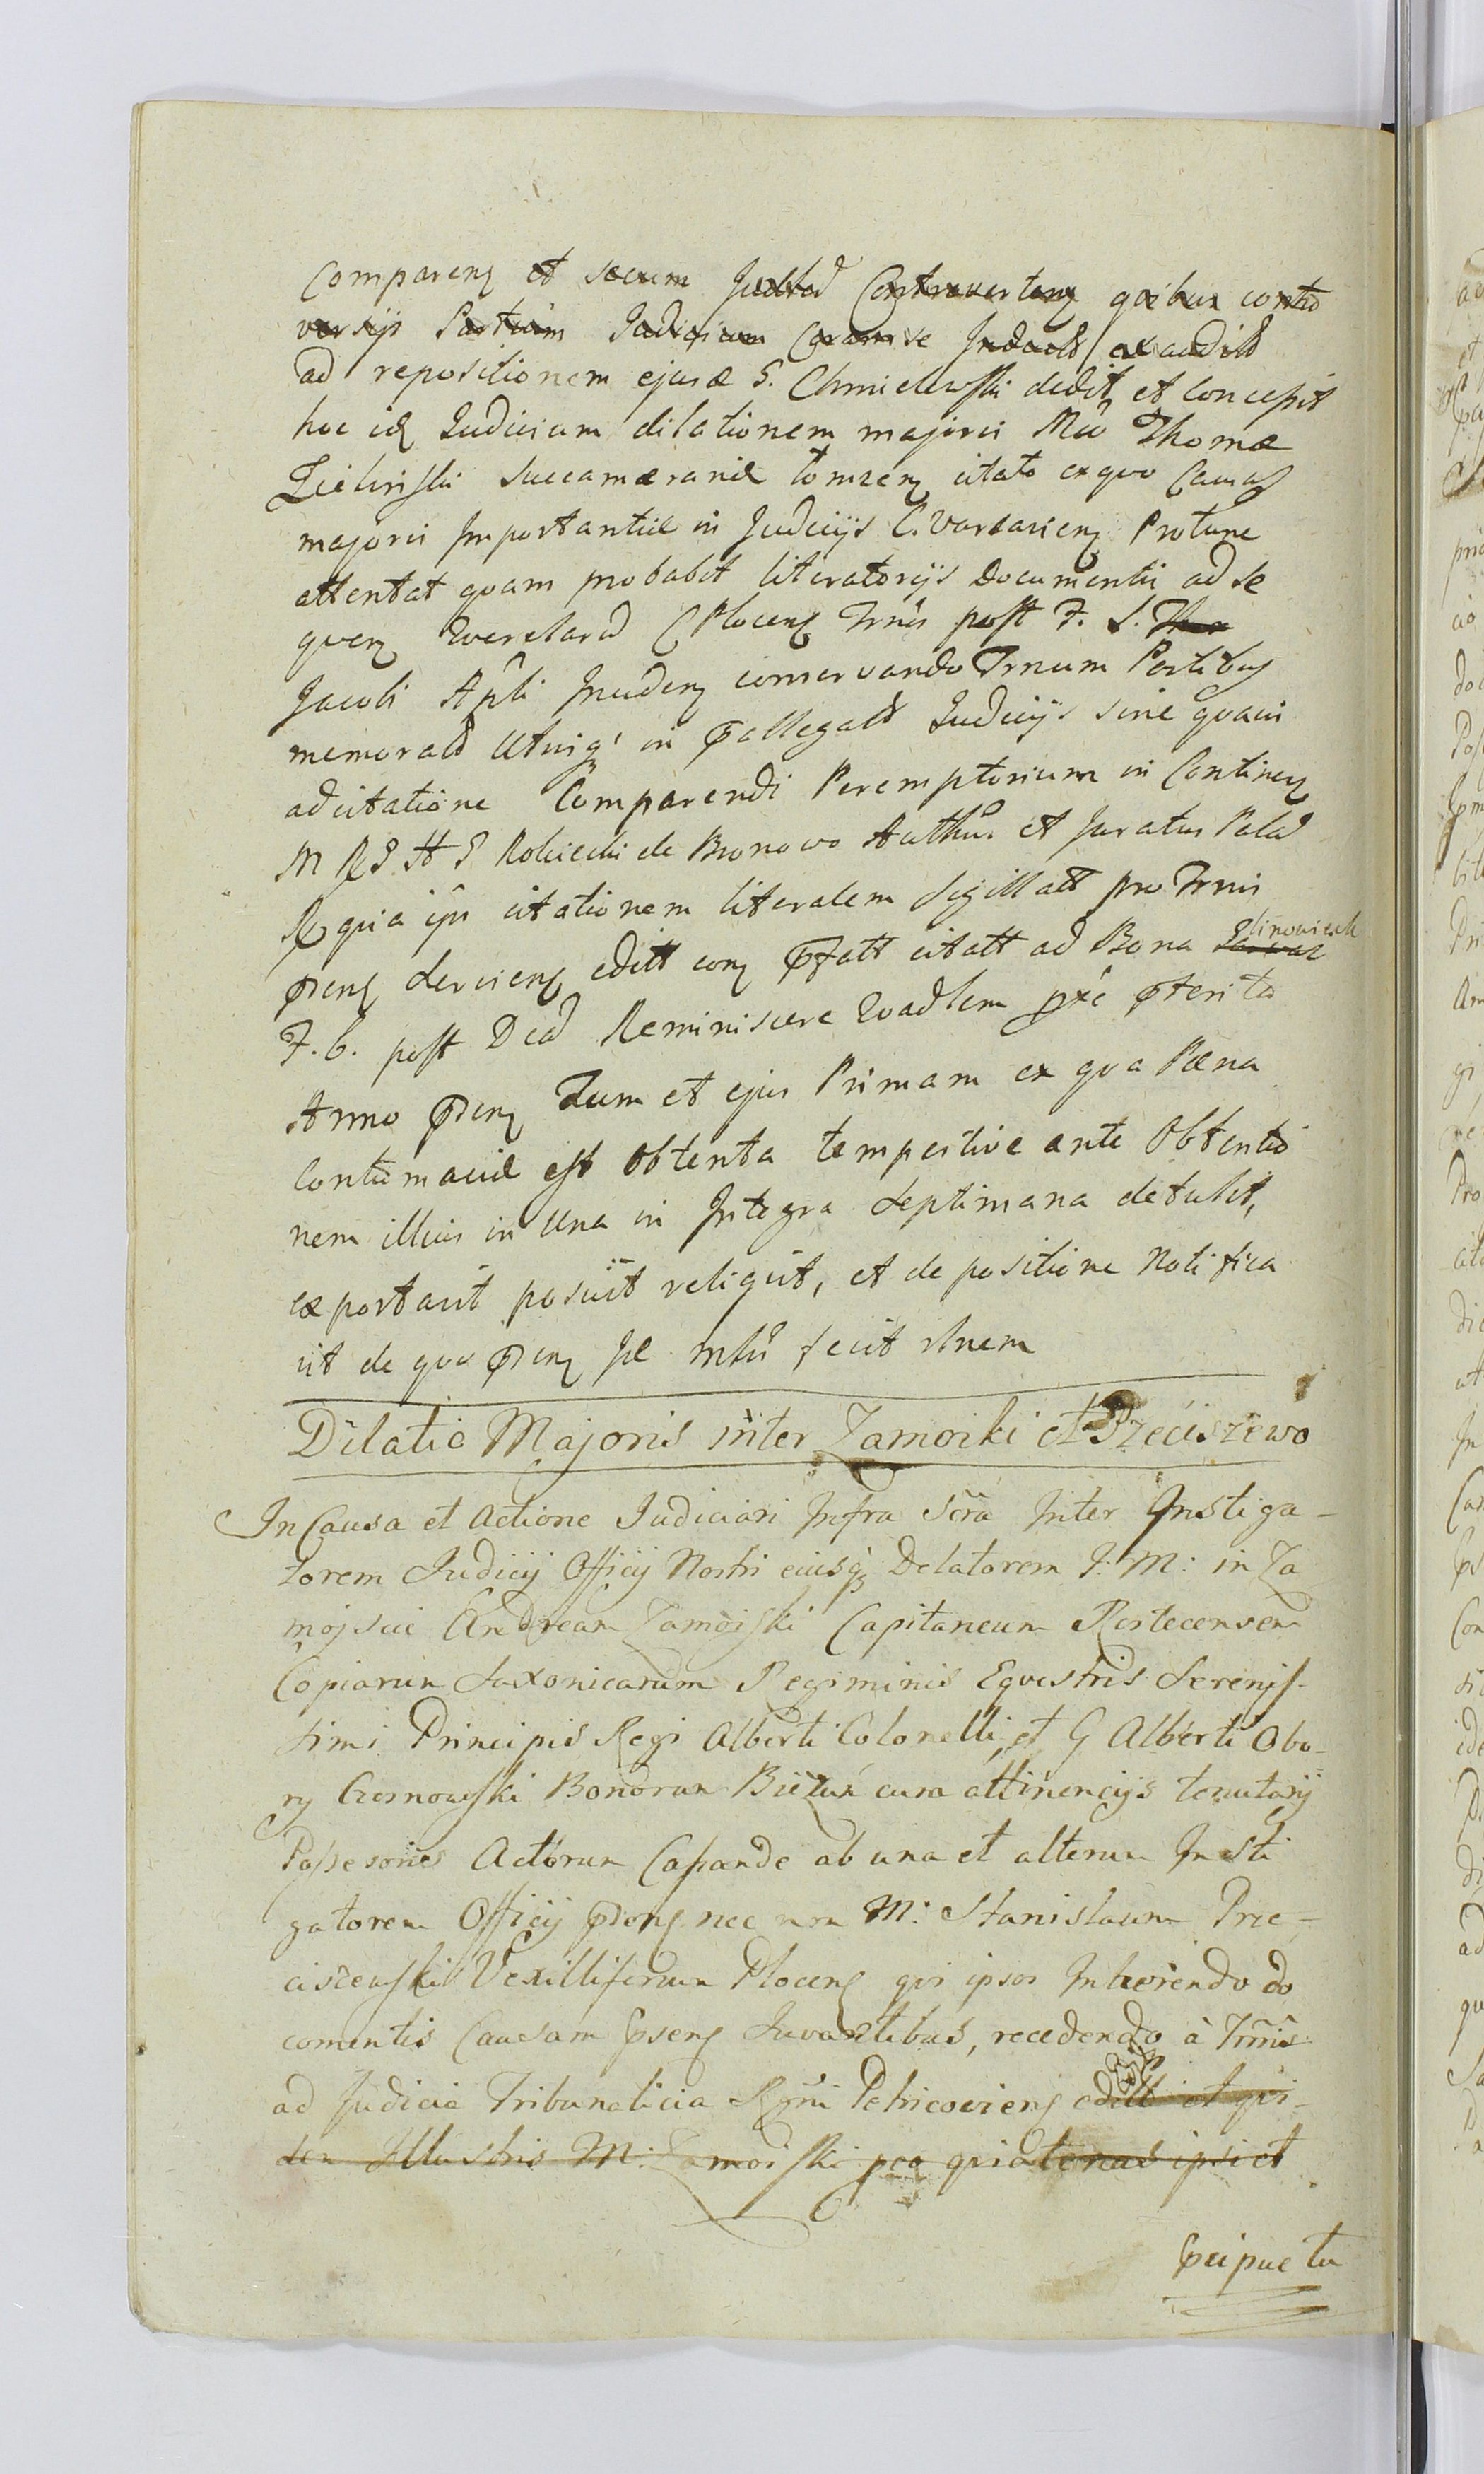 Comparen et secum Judtad Controverten quibus contro
versijs Partium Judicium Coram se Inductis exauditis
ad repositionem ejusd G. Chmielewski dedit et concessit
hoc id Judicium dilationem majoris Mco Thomæ
Zielinski Succamerarie Lomzen citato ex quo Causas
majoris Importantiæ in Judicijs C. Varsavien Protunc
attentat quam probabit literatorijs Documentis ad se
quen Querelard C Plocen Trnis post F. S.
Jacobi Apli Inciden conservando Trnum Partibus
memoratd Utrisq in pallegatis Judicijs sine quavis
adcitatione Comparendi Peremptorium in Continen
M R S A P Rokicki de Bronowo Authus et Juratus Palat
R quia ipse citationem literalem sigillatt pro Trnis
pden Servien editt con pfatt citatt ad Bona
F. 6. post Dcad Reminiscere Quadlem pxe pterita
Anno pden Tum et ejus Primam ex qua Pæna
Contumaciæ est obtenta tempestive ante Obtentio
nem illius in Una in Integra Septimana detulit,
exportavit posuit reliquit, et de positione Notifica
vit de quo pden se mltr fecit rlnem
Dilatio Majoris inter Zamoiki et Przeciszewo
In Causa et Actione Judiciari Infra Scra Inter Instiga-
torem Judicij Officij Nostri eiusq Delatorem J: M: in Za
mojscie Andream Zamoiski Capitaneum Rostecensem
Copiarum Saxonicarum Regiminis Equestris Serenis-
simi Principis Regi Alberti Colonelli, et G Alberti Obo-
ry Czosnowski Bonorum Bieżuń cum attinencijs tenutarij
Possesores Actorum Capande ab una et alterum Insti
gatorem Officij pden nec non M: Stanislaum Prze-
ciszewski Vexilliferum Plocen qui ipsos Inhærendo do
comentis Causam Ipsen Juvantibus, recedendo à Trnis
ad Judicia Tribunalicia Regni Petricovien editt et qui-
dem Illustris M: Zamoiski pro quia tenus ipsi et
Precipue tu